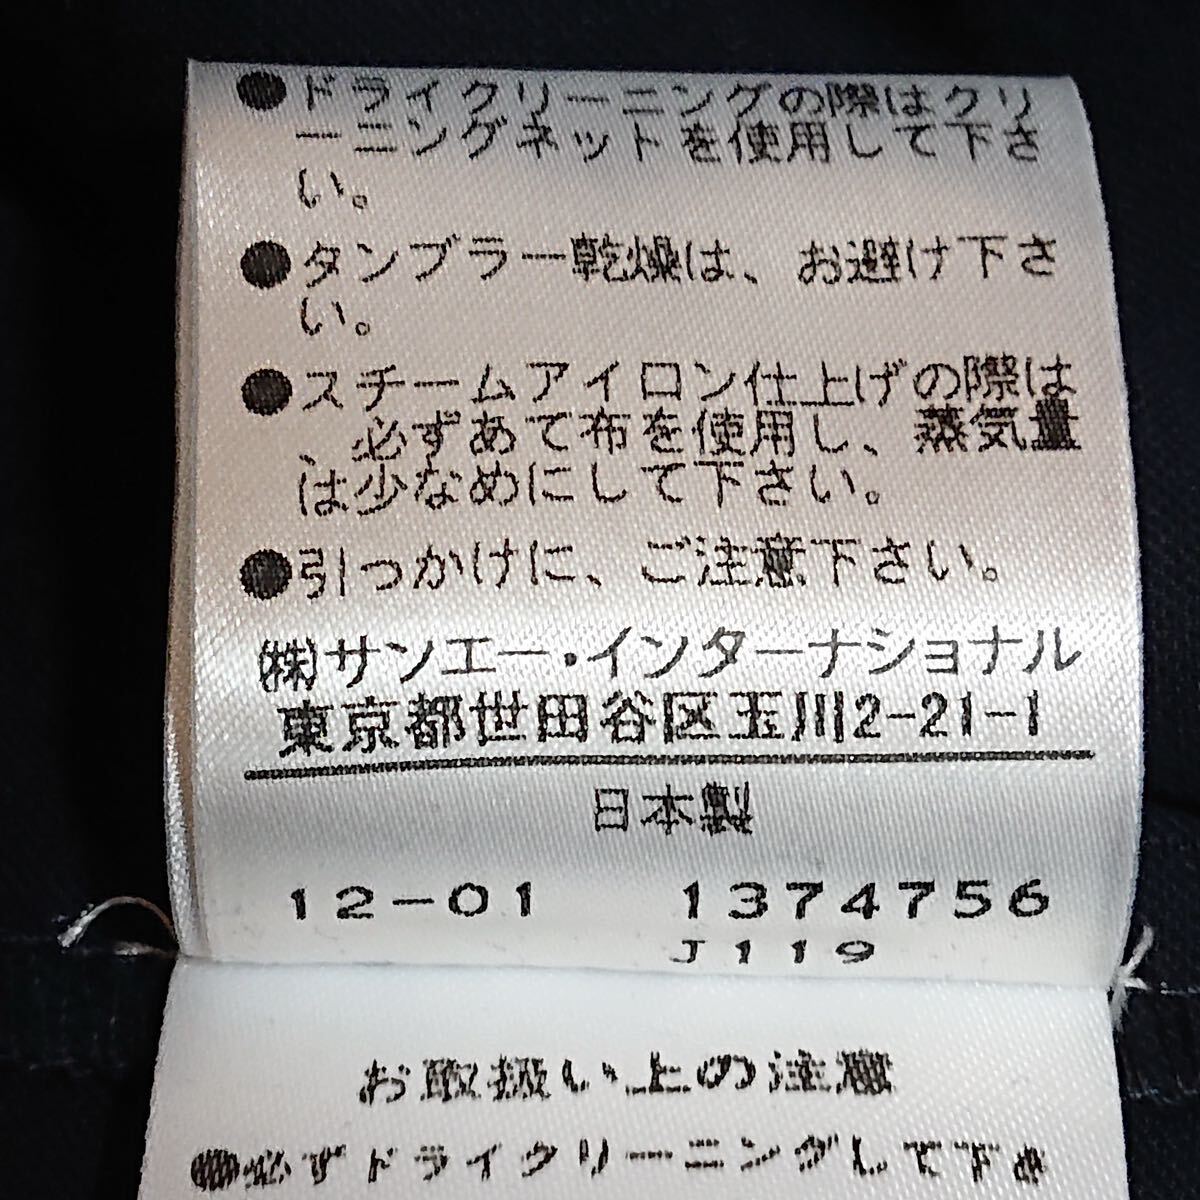 ●ドライクリーニングの際はクリ
ーニングネットを使用して下さ
い。
●タンブラー乾燥は、お避け下さ
い。
●スチームアイロン仕上げの際は
、必ずあて布を使用し、蒸気量
は少なめにして下さい。
●引っかけに、ご注意下さい。
(株)サンエー・インターナショナル
東京都世田谷区玉川2-21-1
日本製
12-01 1374756
J119
お取扱い上の注意
●必ずドライクリーニングして下さ